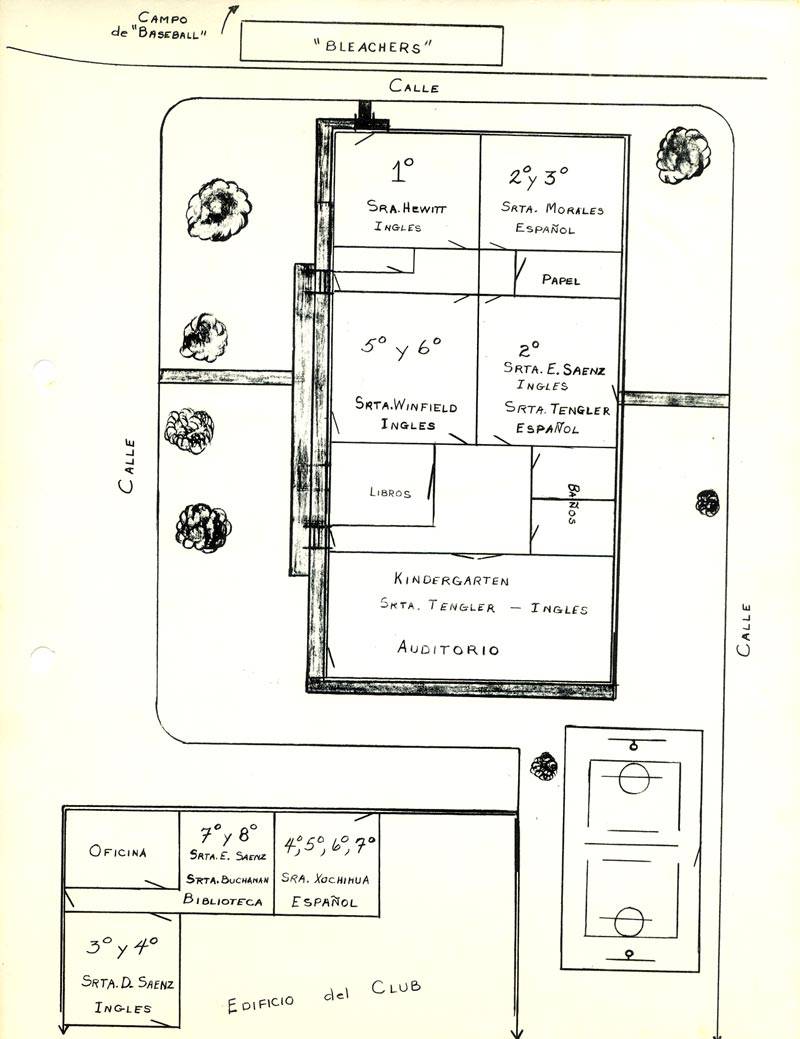 CAMPO
de "BASEBALL"
"BLEACHERS"
CALLE
1º
SRA. HEWITT
INGLES
2º y 3º
SRTA. MORALES
ESPAÑOL
PAPEL
5º y 6º
SRTA. WINFIELD
INGLES
2º
SRTA. E. SAENZ
INGLES
SRTA. TENGLER
ESPAÑOL
CALLE
LIBROS
BAÑOS
KINDERGARTEN
SRTA. TENGLER – INGLES
AUDITORIO
CALLE
OFICINA
7º y 8º
SRTA. E. SAENZ
SRTA. BUCHANAN
BIBLIOTECA
4º, 5º, 6º, 7º
SRA. XOCHIHUA
ESPAÑOL
3º y 4º
SRTA. D. SAENZ
INGLES
EDIFICIO del CLUB